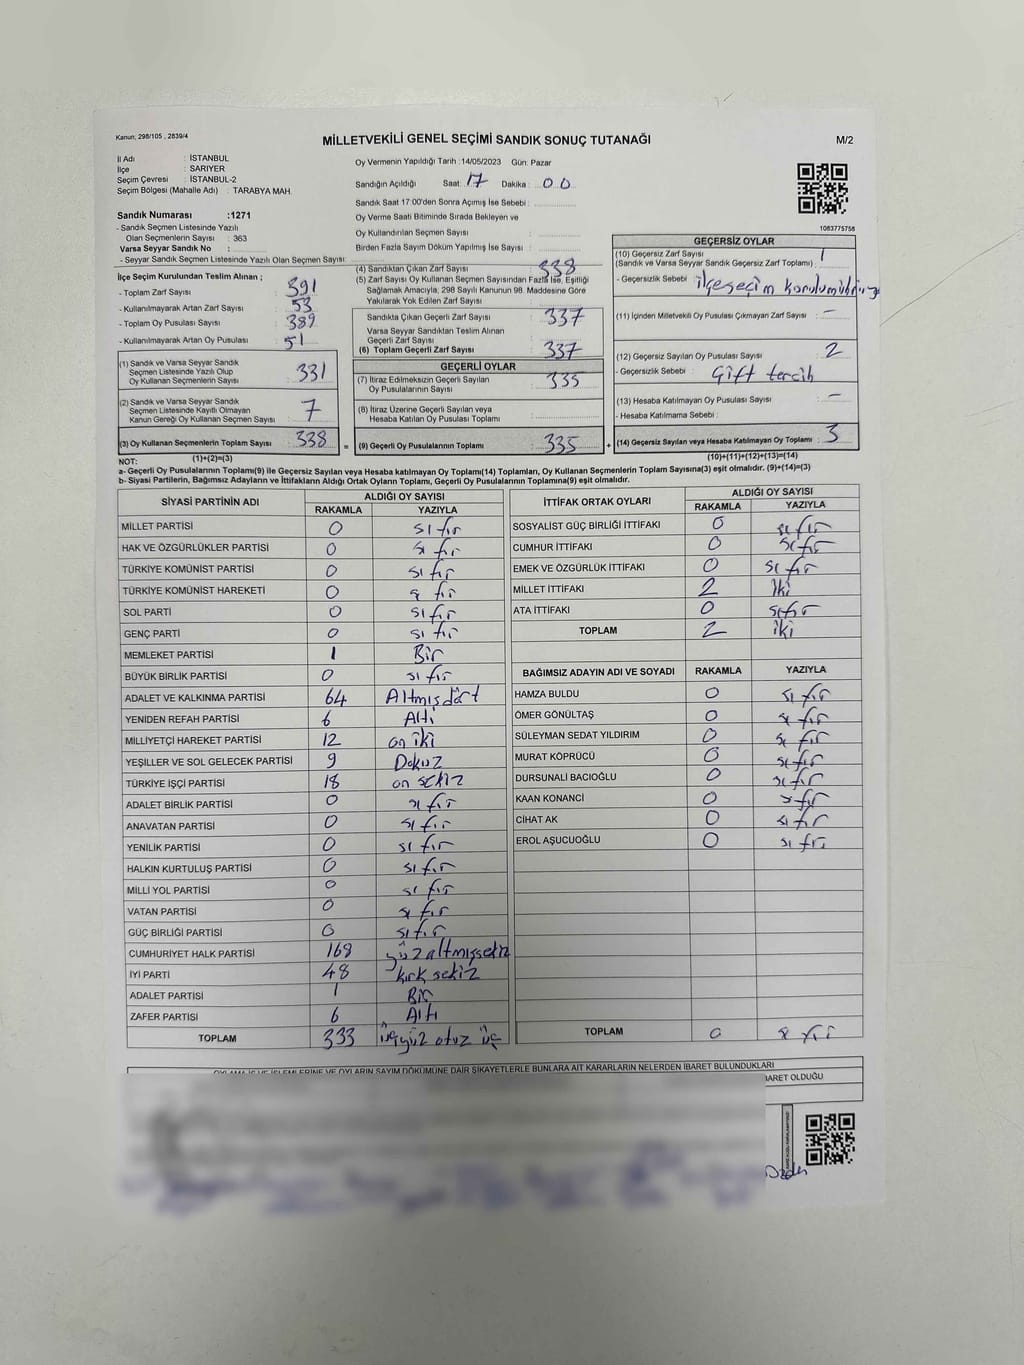 Kanun; 298/105 , 2839/4
MİLLETVEKİLİ GENEL SEÇİMİ SANDIK SONUÇ TUTANAĞI
M/2
İl Adı : İSTANBUL
İlçe : SARIYER
Seçim Çevresi : İSTANBUL-2
Seçim Bölgesi (Mahalle Adı) : TARABYA MAH.
Oy Vermenin Yapıldığı Tarih :14/05/2023 Gün: Pazar
Sandığın Açıldığı Saat: 17 Dakika : 00
Sandık Saat 17:00'den Sonra Açmış İse Sebebi :
Oy Verme Saati Bitiminde Sırada Bekleyen ve
Oy Kullandırılan Seçmen Sayısı :
Birden Fazla Sayım Döküm Yapılmış İse Sayısı :
1083775756
Sandık Numarası :1271
- Sandık Seçmen Listesinde Yazılı
Olan Seçmenlerin Sayısı : 363
Varsa Seyyar Sandık No :
- Seyyar Sandık Seçmen Listesinde Yazılı Olan Seçmen Sayısı:
İlçe Seçim Kurulundan Teslim Alınan ;
- Toplam Zarf Sayısı : 391
- Kullanılmayarak Artan Zarf Sayısı : 53
- Toplam Oy Pusulası Sayısı : 389
- Kullanılmayarak Artan Oy Pusulası : 51
(1) Sandık ve Varsa Seyyar Sandık
Seçmen Listesinde Yazılı Olup
Oy Kullanan Seçmenlerin Sayısı : 331
(2) Sandık ve Varsa Seyyar Sandık
Seçmen Listesinde Kayıtlı Olmayan
Kanun Gereği Oy Kullanan Seçmen Sayısı : 7
(3) Oy Kullanan Seçmenlerin Toplam Sayısı : 338
(1)+(2)=(3)
(4) Sandıktan Çıkan Zarf Sayısı : 338
(5) Zarf Sayısı Oy Kullanan Seçmen Sayısından Fazla İse, Eşitliği
Sağlamak Amacıyla, 298 Sayılı Kanunun 98. Maddesine Göre
Yakılarak Yok Edilen Zarf Sayısı :
Sandıkta Çıkan Geçerli Zarf Sayısı : 337
Varsa Seyyar Sandıktan Teslim Alınan
Geçerli Zarf Sayısı :
(6) Toplam Geçerli Zarf Sayısı : 337
GEÇERLİ OYLAR
(7) İtiraz Edilmeksizin Geçerli Sayılan
Oy Pusulalarının Sayısı : 335
(8) İtiraz Üzerine Geçerli Sayılan veya
Hesaba Katılan Oy Pusulası Sayısı :
= (9) Geçerli Oy Pusulalarının Toplamı : 335 +
GEÇERSİZ OYLAR
(10) Geçersiz Zarf Sayısı
(Sandık ve Varsa Seyyar Sandık Geçersiz Zarf Toplamı) : 1
- Geçersizlik Sebebi :
(11) İçinden Milletvekili Oy Pusulası Çıkmayan Zarf Sayısı : -
(12) Geçersiz Sayılan Oy Pusulası Sayısı : 2
- Geçersizlik Sebebi : Çift tercih
(13) Hesaba Katılmayan Oy Pusulası Sayısı : -
- Hesaba Katılmama Sebebi :
(14) Geçersiz Sayılan veya Hesaba Katılmayan Oy Toplamı : 3
(10)+(11)+(12)+(13)=(14)
NOT:
a- Geçerli Oy Pusulalarının Toplamı(9) ile Geçersiz Sayılan veya Hesaba katılmayan Oy Toplamı(14) Toplamları, Oy Kullanan Seçmenlerin Toplam Sayısına(3) eşit olmalıdır. (9)+(14)=(3)
b- Siyasi Partilerin, Bağımsız Adayların ve İttifakların Aldığı Ortak Oyların Toplamı, Geçerli Oy Pusulalarının Toplamına(9) eşit olmalıdır.
SİYASİ PARTİNİN ADI ALDIĞI OY SAYISI
RAKAMLA YAZIYLA
MİLLET PARTİSİ 0 sıfır
HAK VE ÖZGÜRLÜKLER PARTİSİ 0 sıfır
TÜRKİYE KOMÜNİST PARTİSİ 0 sıfır
TÜRKİYE KOMÜNİST HAREKETİ 0 sıfır
SOL PARTİ 0 sıfır
GENÇ PARTİ 0 sıfır
MEMLEKET PARTİSİ 1 Bir
BÜYÜK BİRLİK PARTİSİ 0 sıfır
ADALET VE KALKINMA PARTİSİ 64 Altmışdört
YENİDEN REFAH PARTİSİ 6 Altı
MİLLİYETÇİ HAREKET PARTİSİ 12 on iki
YEŞİLLER VE SOL GELECEK PARTİSİ 9 Dokuz
TÜRKİYE İŞÇİ PARTİSİ 18 on sekiz
ADALET BİRLİK PARTİSİ 0 sıfır
ANAVATAN PARTİSİ 0 sıfır
YENİLİK PARTİSİ 0 sıfır
HALKIN KURTULUŞ PARTİSİ 0 sıfır
MİLLİ YOL PARTİSİ 0 sıfır
VATAN PARTİSİ 0 sıfır
GÜÇ BİRLİĞİ PARTİSİ 0 sıfır
CUMHURİYET HALK PARTİSİ 168 yüzaltmışsekiz
İYİ PARTİ 48 kırksekiz
ADALET PARTİSİ 1 Bir
ZAFER PARTİSİ 6 Altı
TOPLAM 333 üçyüz otuz üç
İTTİFAK ORTAK OYLARI ALDIĞI OY SAYISI
RAKAMLA YAZIYLA
SOSYALİST GÜÇ BİRLİĞİ İTTİFAKI 0 sıfır
CUMHUR İTTİFAKI 0 sıfır
EMEK VE ÖZGÜRLÜK İTTİFAKI 0 sıfır
MİLLET İTTİFAKI 2 İki
ATA İTTİFAKI 0 sıfır
TOPLAM 2 iki
BAĞIMSIZ ADAYIN ADI VE SOYADI RAKAMLA YAZIYLA
HAMZA BULDU 0 sıfır
ÖMER GÖNÜLTAŞ 0 sıfır
SÜLEYMAN SEDAT YILDIRIM 0 sıfır
MURAT KÖPRÜCÜ 0 sıfır
DURSUNALİ BACIOĞLU 0 sıfır
KAAN KONANCİ 0 sıfır
CİHAT AK 0 sıfır
EROL AŞUCUOĞLU 0 sıfır
TOPLAM 0 sıfır
OYLAMA İŞ VE İŞLEMLERİNE VE OYLARIN SAYIM DÖKÜMÜNE DAİR ŞİKAYETLERLE BUNLARA AİT KARARLARIN NELERDEN İBARET BULUNDUKLARI
İBARET OLDUĞU